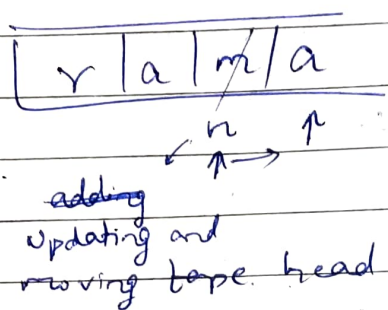 r | a | m | a
n ↑
↙ ↑ →
adding
updating and
moving tape head